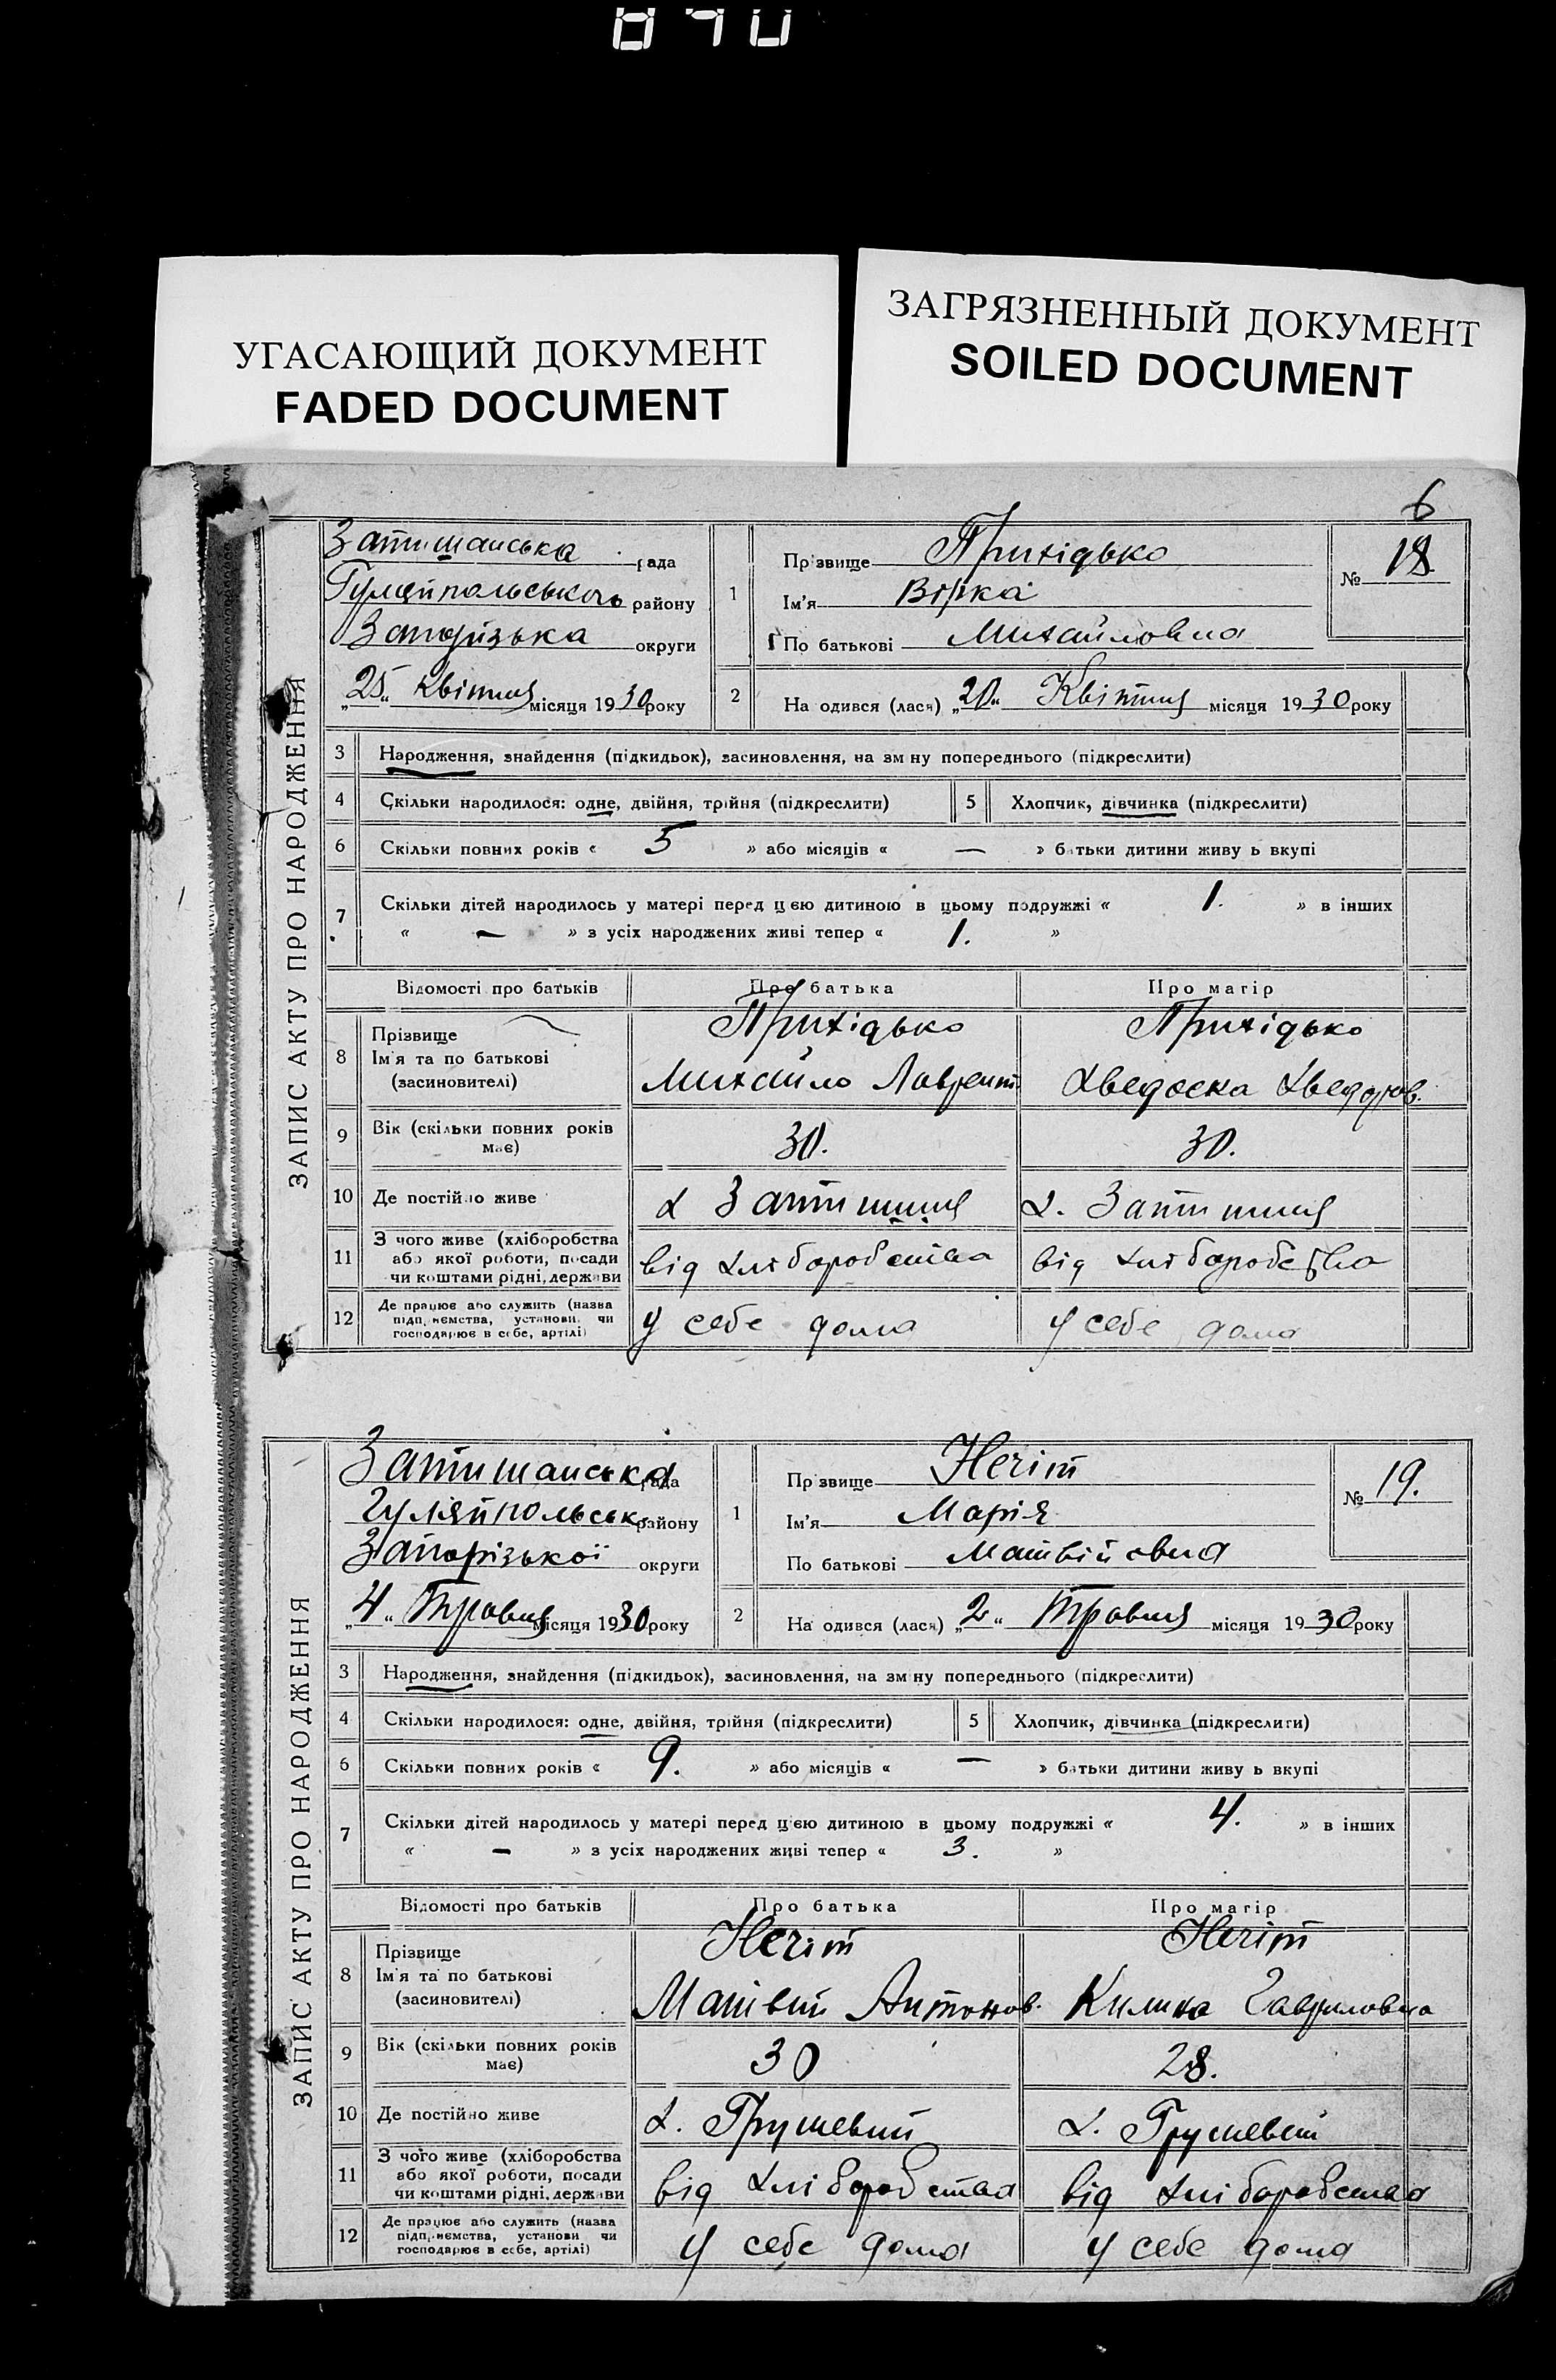 УГАСАЮЩИЙ ДОКУМЕНТ
FADED DOCUMENT
ЗАГРЯЗНЕННЫЙ ДОКУМЕНТ
SOILED DOCUMENT
6
ЗАПИС АКТУ ПРО НАРОДЖЕННЯ
Затишанська рада
Гуляйпольського району
Запорізька округи
„25“ Квітня місяця 1930 року
1 Прізвище Прихідько
Ім'я Вірка
По батькові Михайловна
№ 18
2 Народився (лася) „20“ Квітня місяця 1930 року
3 Народження, знайдення (підкидьок), засиновлення, на зміну попереднього (підкреслити)
4 Скільки народилося: одне, двійня, трійня (підкреслити) 5 Хлопчик, дівчинка (підкреслити)
6 Скільки повних років « 5 » або місяців « — » батьки дитини живуть вкупі
7 Скільки дітей народилось у матері перед цією дитиною в цьому подружжі « 1. » в інших
« — » з усіх народжених живі тепер « 1. »
Відомості про батьків Про батька Про матір
8 Прізвище
Ім'я та по батькові
(засиновителі)
Прихідько
Михайло Лаврент
Прихідько
Хведоска Хведоров.
9 Вік (скільки повних років
має)
30. 30.
10 Де постійно живе х Затишшя х. Затишшя
11 З чого живе (хліборобства
або якої роботи, посади
чи коштами рідні, держави
від хліборобства від хліборобства
12 Де працює або служить (назва
підприємства, установи чи
господарює в себе, артілі)
у себе дома у себе дома
ЗАПИС АКТУ ПРО НАРОДЖЕННЯ
Затишанська рада
Гуляйпольськ. району
Запорізької округи
„4“ Травня місяця 1930 року
1 Прізвище Нечіт
Ім'я Марія
По батькові Матвійовна
№ 19.
2 Народився (лася) „2“ Травня місяця 1930 року
3 Народження, знайдення (підкидьок), засиновлення, на зміну попереднього (підкреслити)
4 Скільки народилося: одне, двійня, трійня (підкреслити) 5 Хлопчик, дівчинка (підкреслити)
6 Скільки повних років « 9. » або місяців « — » батьки дитини живуть вкупі
7 Скільки дітей народилось у матері перед цією дитиною в цьому подружжі « 4. » в інших
« — » з усіх народжених живі тепер « 3. »
Відомості про батьків Про батька Про матір
8 Прізвище
Ім'я та по батькові
(засиновителі)
Нечіт
Матвій Антонов.
Нечіт
Килина Гавриловна
9 Вік (скільки повних років
має)
30 28.
10 Де постійно живе х. Грушевий х. Грушевий
11 З чого живе (хліборобства
або якої роботи, посади
чи коштами рідні, держави
від хліборобства від хліборобства
12 Де працює або служить (назва
підприємства, установи чи
господарює в себе, артілі)
у себе дома у себе дома